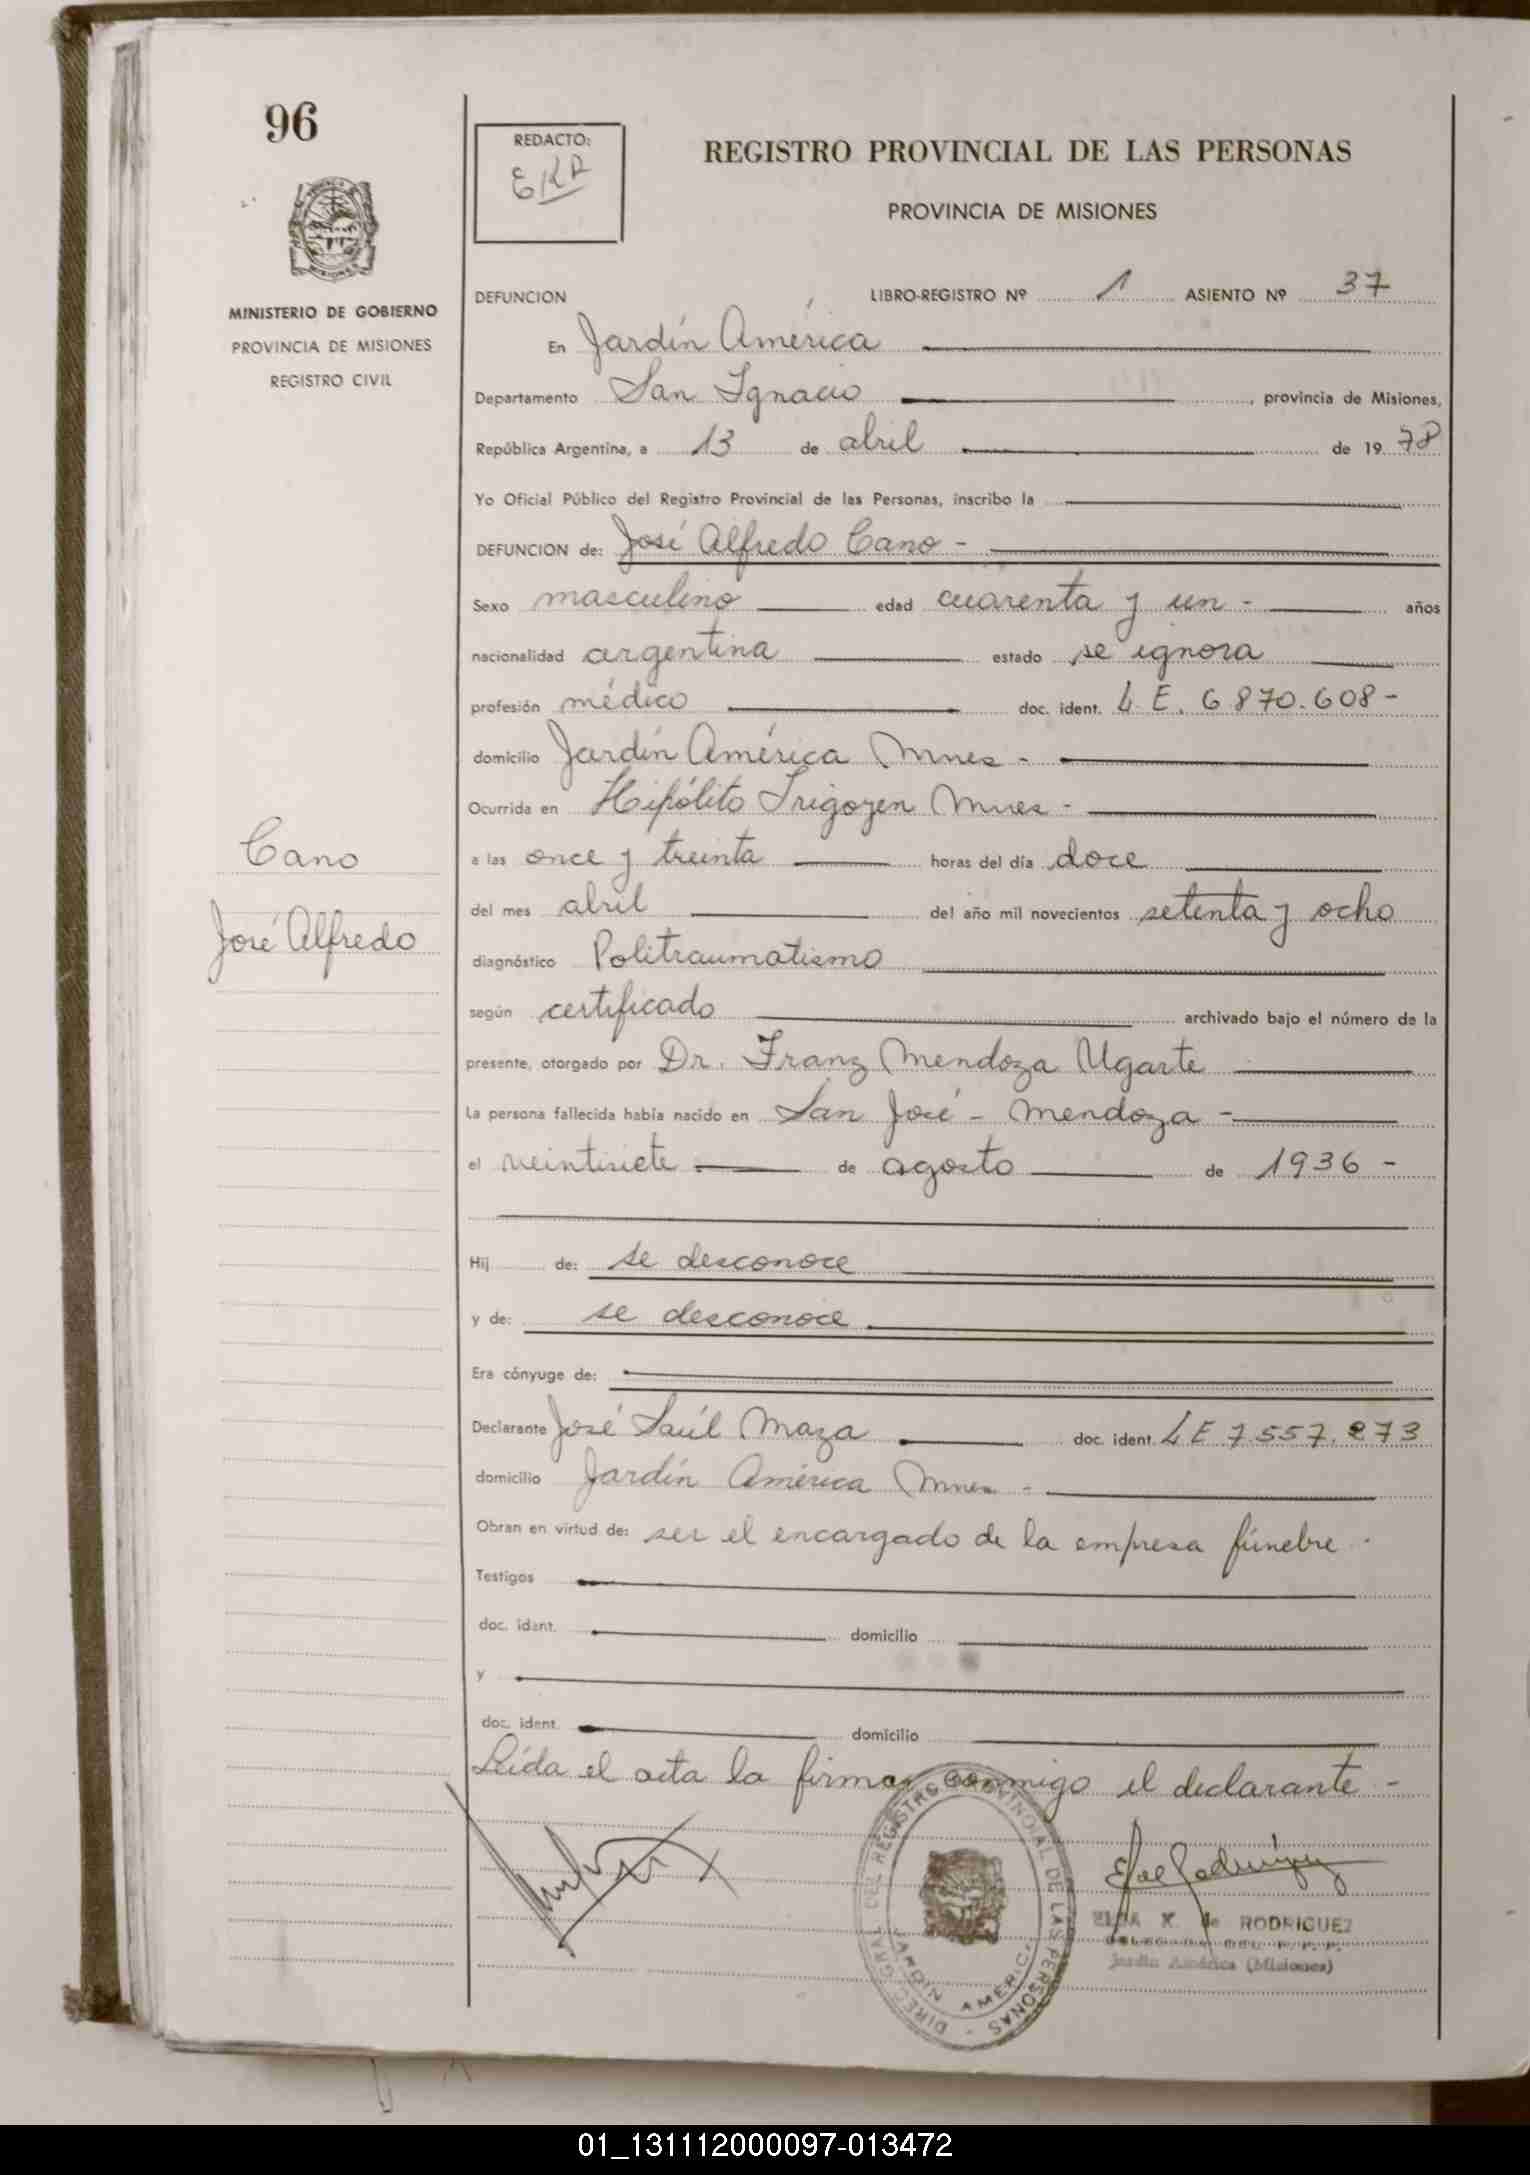 96
REDACTO:
EKR
REGISTRO PROVINCIAL DE LAS PERSONAS
PROVINCIA DE MISIONES
MINISTERIO DE GOBIERNO
PROVINCIA DE MISIONES
REGISTRO CIVIL
DEFUNCION LIBRO-REGISTRO Nº 1 ASIENTO Nº 37
En Jardín América
Departamento San Ignacio, provincia de Misiones,
República Argentina, a 13 de abril de 1978
Yo Oficial Público del Registro Provincial de las Personas, inscribo la
DEFUNCION de: José Alfredo Cano -
Sexo masculino edad cuarenta y un - años
nacionalidad argentina estado se ignora
profesión médico doc. ident. L E. 6.870.608 -
domicilio Jardín América Mnes -
Ocurrida en Hipólito Irigoyen Mnes -
a las once y treinta horas del día doce
del mes abril del año mil novecientos setenta y ocho
diagnóstico Politraumatismo
según certificado archivado bajo el número de la
presente, otorgado por Dr. Franz Mendoza Ugarte
La persona fallecida había nacido en San José - Mendoza -
el veintisiete de agosto de 1936 -
Hij de: se desconoce
y de: se desconoce
Era cónyuge de:
Declarante José Saúl Maza doc. ident. L E 7.557.273
domicilio Jardín América Mnes -
Obran en virtud de: ser el encargado de la empresa fúnebre.
Testigos
doc. ident. domicilio
y
doc. ident. domicilio
Leída el acta la firma conmigo el declarante -
Cano
José Alfredo
DIREC. GRAL. DEL REGISTRO PROVINCIAL DE LAS PERSONAS -
JARDIN AMERICA
ELDA K. de RODRIGUEZ
Jardín América (Misiones)
01_131112000097-013472